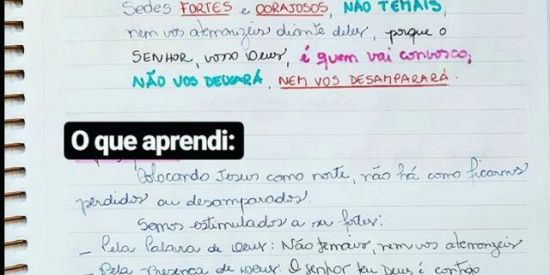 Sedes FORTES e CORAJOSOS, NÃO TEMAIS,
nem vos atemorizeis diante deles, porque o
SENHOR, vosso Deus, é quem vai convosco;
NÃO VOS DEIXARÁ, NEM VOS DESAMPARARÁ.
O que aprendi:
Colocando Jesus como norte, não há como ficarmos
perdidos ou desamparados.
Somos estimulados a ser fortes:
- Pela Palavra de Deus: Não temais, nem vos atemorizeis
- Pela Presença de Deus: O senhor teu Deus é contigo